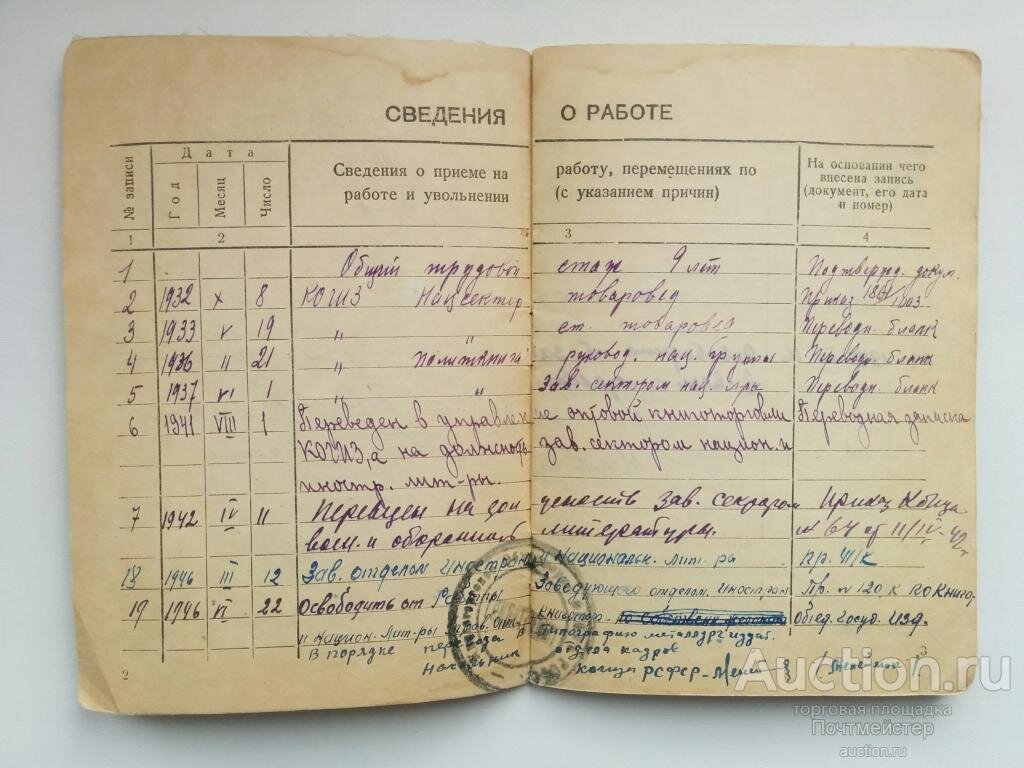 СВЕДЕНИЯ О РАБОТЕ
№ записи
Дата
Год
Месяц
Число
Сведения о приеме на работу, перемещениях по
работе и увольнении (с указанием причин)
На основании чего
внесена запись
(документ, его дата
и номер)
1 2 3 4
1 Общий трудовой стаж 9 лет Подтвержд. докум.
2 1932 X 8 КОГИЗ Нацсектор товаровед Приказ
3 1933 V 19 " ст. товаровед Переводн. бланк
4 1936 II 21 " Политкнига руковод. нац. группы Переводн. бланк
5 1937 VI 1 " " Зав. сектором нац. л-ры Переводн. бланк
6 1941 VIII 1 Переведен в управление оптовой книготорговли Переводная записка
КОГИЗ,а на должность зав. сектором национ. и
иностр. лит-ры.
7 1942 IV 11 должность зав. Приказ Когиза
воен. и оборонной литературы. N 64 от 11/IV-42г
18 1946 III 12 Зав. отделом Иностран. и Национальн. лит-ры
19 1946 VI 22 Освободить от работы Заведующего отделом Иностран Пр. N 120
и Национ. Лит-ры Управ. Опт. Книготор. Об'ед. Госуд. Изд.
В порядке перевода в типографию металлургиздат.
Начальник отдела кадров
Когиза РСФСР
2
3
Auction.ru
торговая площадка
Почтмейстер
auction.ru